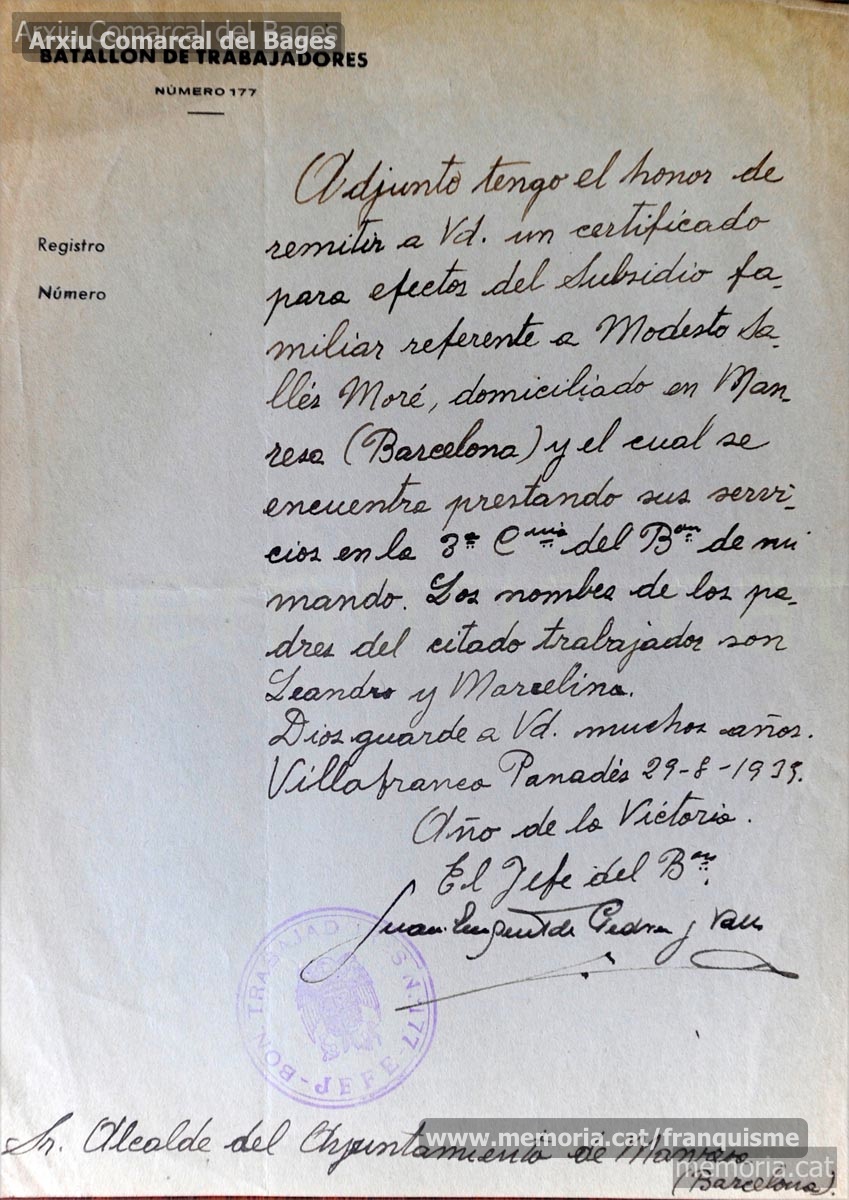 Arxiu Comarcal del Bages
Arxiu Comarcal del Bages
BATALLON DE TRABAJADORES
NÚMERO 177
Registro
Número
Adjunto tengo el honor de
remitir a Vd. un certificado
para efectos del Subsidio fa-
miliar referente a Modesto Sa-
llés Moré, domiciliado en Man-
resa (Barcelona) y el cual se
encuentra prestando sus servi-
cios en la 3ª Cñia del Bon de mi
mando. Los nombes de los pa-
dres del citado trabajador son
Leandro y Marcelina.
Dios guarde a Vd. muchos años.
Villafranca Panadés 29-8-1939.
Año de la Victoria.
El Jefe del Bon.
Juan de Pedra y Valls
BON. TRABAJADORES N. 177 - JEFE -
Sr. Alcalde del Ayuntamiento de Manresa
(Barcelona).
www.memoria.cat/franquisme
memoria.cat